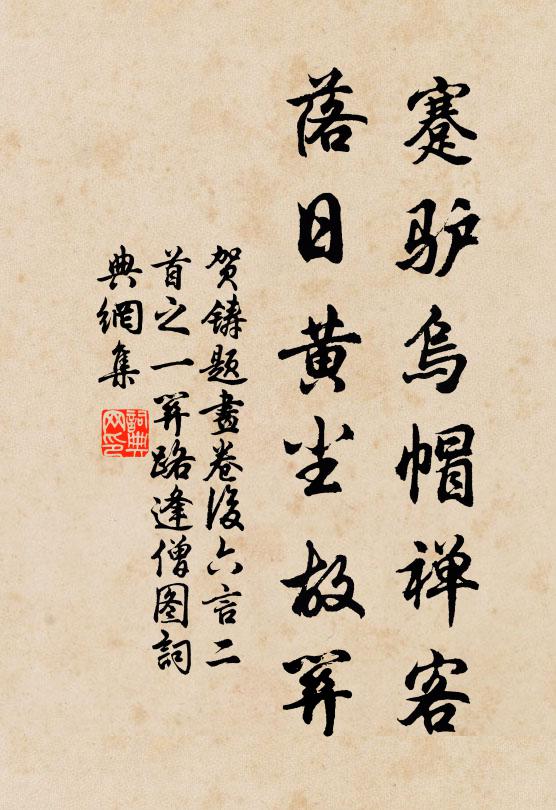 蹇驴烏帽禅客
落日黄尘故关
贺鑄题畫卷後六言二
首之一关路逢僧图詞
典網集
詞典
网印